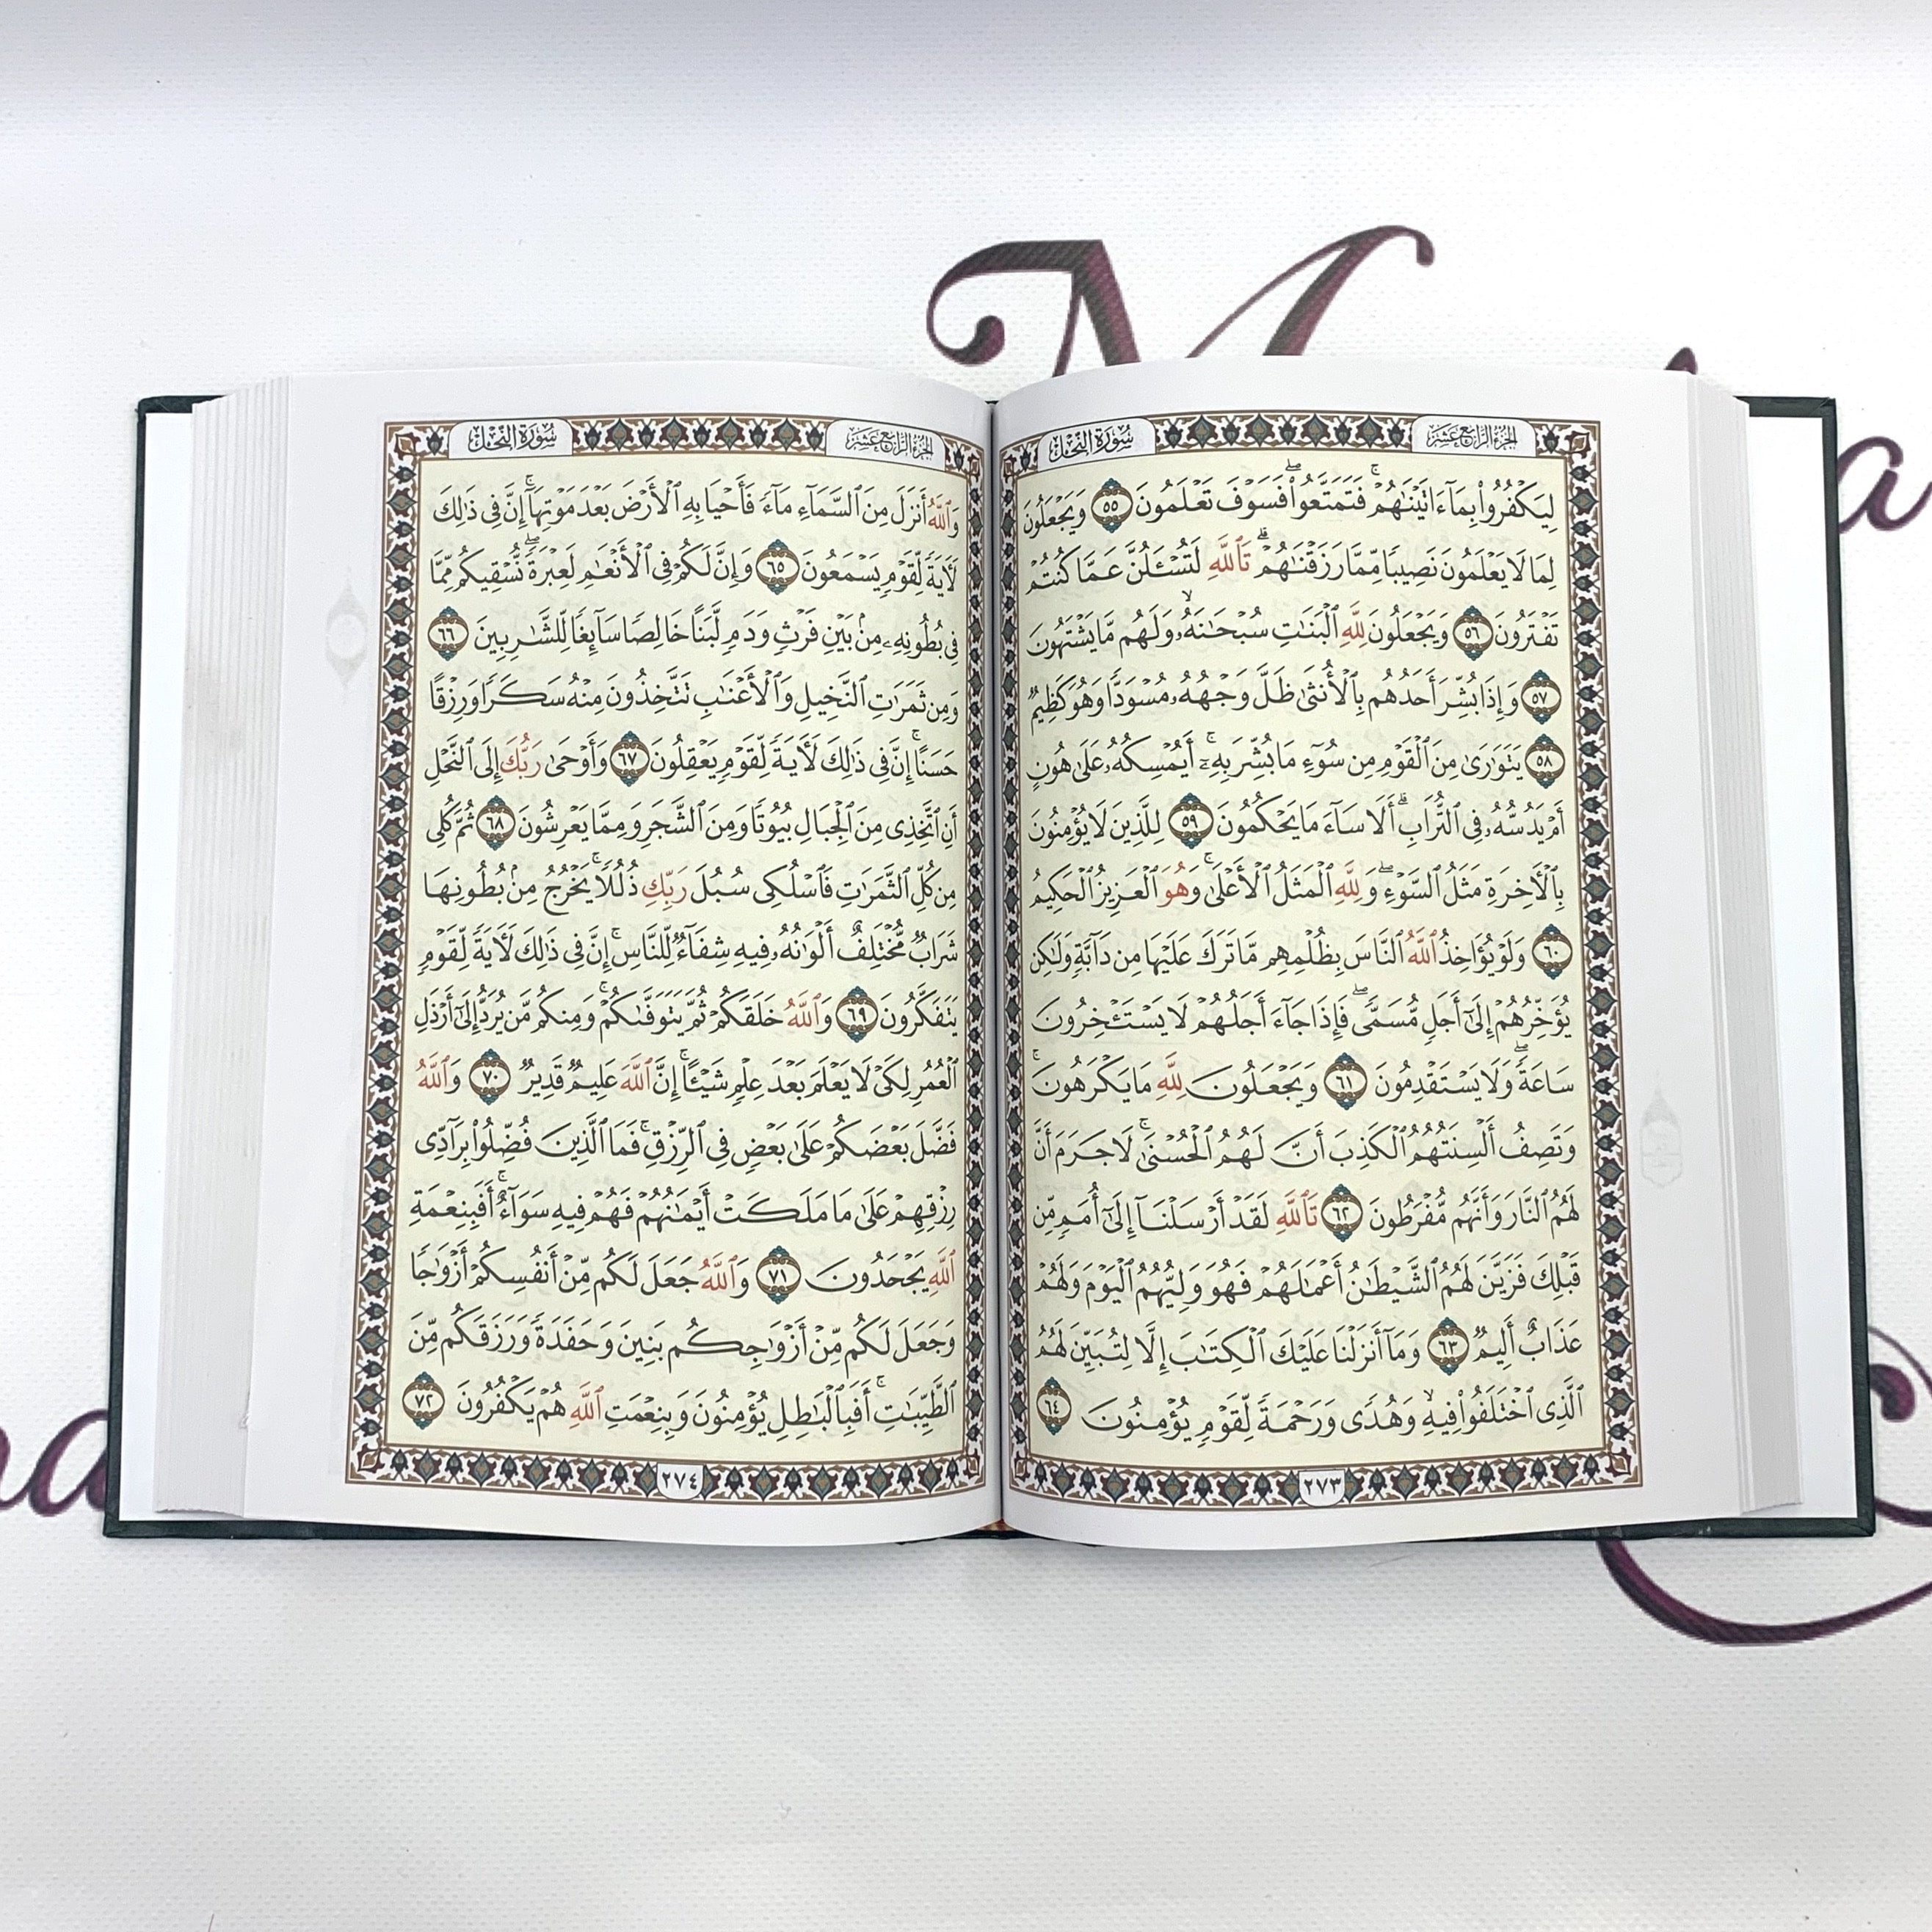 الجزء الرابع عشر
سورة النحل
لِيَكْفُرُوا۟ بِمَآ ءَاتَيْنَٰهُمْ ۚ فَتَمَتَّعُوا۟ ۖ فَسَوْفَ تَعْلَمُونَ ٥٥ وَيَجْعَلُونَ
لِمَا لَا يَعْلَمُونَ نَصِيبًا مِّمَّا رَزَقْنَٰهُمْ ۗ تَٱللَّهِ لَتُسْـَٔلُنَّ عَمَّا كُنتُمْ
تَفْتَرُونَ ٥٦ وَيَجْعَلُونَ لِلَّهِ ٱلْبَنَٰتِ سُبْحَٰنَهُۥ ۙ وَلَهُم مَّا يَشْتَهُونَ
٥٧ وَإِذَا بُشِّرَ أَحَدُهُم بِٱلْأُنثَىٰ ظَلَّ وَجْهُهُۥ مُسْوَدًّا وَهُوَ كَظِيمٌ
٥٨ يَتَوَٰرَىٰ مِنَ ٱلْقَوْمِ مِن سُوٓءِ مَا بُشِّرَ بِهِۦٓ ۚ أَيُمْسِكُهُۥ عَلَىٰ هُونٍ
أَمْ يَدُسُّهُۥ فِى ٱلتُّرَابِ ۗ أَلَا سَآءَ مَا يَحْكُمُونَ ٥٩ لِلَّذِينَ لَا يُؤْمِنُونَ
بِٱلْـَٔاخِرَةِ مَثَلُ ٱلسَّوْءِ ۖ وَلِلَّهِ ٱلْمَثَلُ ٱلْأَعْلَىٰ ۚ وَهُوَ ٱلْعَزِيزُ ٱلْحَكِيمُ
٦٠ وَلَوْ يُؤَاخِذُ ٱللَّهُ ٱلنَّاسَ بِظُلْمِهِم مَّا تَرَكَ عَلَيْهَا مِن دَآبَّةٍ وَلَٰكِن
يُؤَخِّرُهُمْ إِلَىٰٓ أَجَلٍ مُّسَمًّى ۖ فَإِذَا جَآءَ أَجَلُهُمْ لَا يَسْتَـْٔخِرُونَ
سَاعَةً ۖ وَلَا يَسْتَقْدِمُونَ ٦١ وَيَجْعَلُونَ لِلَّهِ مَا يَكْرَهُونَ ۚ
وَتَصِفُ أَلْسِنَتُهُمُ ٱلْكَذِبَ أَنَّ لَهُمُ ٱلْحُسْنَىٰ ۚ لَا جَرَمَ أَنَّ
لَهُمُ ٱلنَّارَ وَأَنَّهُم مُّفْرَطُونَ ٦٢ تَٱللَّهِ لَقَدْ أَرْسَلْنَآ إِلَىٰٓ أُمَمٍ مِّن
قَبْلِكَ فَزَيَّنَ لَهُمُ ٱلشَّيْطَٰنُ أَعْمَٰلَهُمْ فَهُوَ وَلِيُّهُمُ ٱلْيَوْمَ وَلَهُمْ
عَذَابٌ أَلِيمٌ ٦٣ وَمَآ أَنزَلْنَا عَلَيْكَ ٱلْكِتَٰبَ إِلَّا لِتُبَيِّنَ لَهُمُ
ٱلَّذِى ٱخْتَلَفُوا۟ فِيهِ ۙ وَهُدًى وَرَحْمَةً لِّقَوْمٍ يُؤْمِنُونَ ٦٤
٢٧٣
الجزء الرابع عشر
سورة النحل
وَٱللَّهُ أَنزَلَ مِنَ ٱلسَّمَآءِ مَآءً فَأَحْيَا بِهِ ٱلْأَرْضَ بَعْدَ مَوْتِهَآ ۚ إِنَّ فِى ذَٰلِكَ
لَـَٔايَةً لِّقَوْمٍ يَسْمَعُونَ ٦٥ وَإِنَّ لَكُمْ فِى ٱلْأَنْعَٰمِ لَعِبْرَةً ۖ نُّسْقِيكُم مِّمَّا
فِى بُطُونِهِۦ مِنۢ بَيْنِ فَرْثٍ وَدَمٍ لَّبَنًا خَالِصًا سَآئِغًا لِّلشَّٰرِبِينَ ٦٦
وَمِن ثَمَرَٰتِ ٱلنَّخِيلِ وَٱلْأَعْنَٰبِ تَتَّخِذُونَ مِنْهُ سَكَرًا وَرِزْقًا
حَسَنًا ۚ إِنَّ فِى ذَٰلِكَ لَـَٔايَةً لِّقَوْمٍ يَعْقِلُونَ ٦٧ وَأَوْحَىٰ رَبُّكَ إِلَى ٱلنَّحْلِ
أَنِ ٱتَّخِذِى مِنَ ٱلْجِبَالِ بُيُوتًا وَمِنَ ٱلشَّجَرِ وَمِمَّا يَعْرِشُونَ ٦٨ ثُمَّ كُلِى
مِن كُلِّ ٱلثَّمَرَٰتِ فَٱسْلُكِى سُبُلَ رَبِّكِ ذُلُلًا ۚ يَخْرُجُ مِنۢ بُطُونِهَا
شَرَابٌ مُّخْتَلِفٌ أَلْوَٰنُهُۥ فِيهِ شِفَآءٌ لِّلنَّاسِ ۗ إِنَّ فِى ذَٰلِكَ لَـَٔايَةً لِّقَوْمٍ
يَتَفَكَّرُونَ ٦٩ وَٱللَّهُ خَلَقَكُمْ ثُمَّ يَتَوَفَّىٰكُمْ ۚ وَمِنكُم مَّن يُرَدُّ إِلَىٰٓ أَرْذَلِ
ٱلْعُمُرِ لِكَىْ لَا يَعْلَمَ بَعْدَ عِلْمٍ شَيْـًٔا ۚ إِنَّ ٱللَّهَ عَلِيمٌ قَدِيرٌ ٧٠ وَٱللَّهُ
فَضَّلَ بَعْضَكُمْ عَلَىٰ بَعْضٍ فِى ٱلرِّزْقِ ۚ فَمَا ٱلَّذِينَ فُضِّلُوا۟ بِرَآدِّى
رِزْقِهِمْ عَلَىٰ مَا مَلَكَتْ أَيْمَٰنُهُمْ فَهُمْ فِيهِ سَوَآءٌ ۚ أَفَبِنِعْمَةِ
ٱللَّهِ يَجْحَدُونَ ٧١ وَٱللَّهُ جَعَلَ لَكُم مِّنْ أَنفُسِكُمْ أَزْوَٰجًا
وَجَعَلَ لَكُم مِّنْ أَزْوَٰجِكُم بَنِينَ وَحَفَدَةً وَرَزَقَكُم مِّنَ
ٱلطَّيِّبَٰتِ ۚ أَفَبِٱلْبَٰطِلِ يُؤْمِنُونَ وَبِنِعْمَتِ ٱللَّهِ هُمْ يَكْفُرُونَ ٧٢
٢٧٤